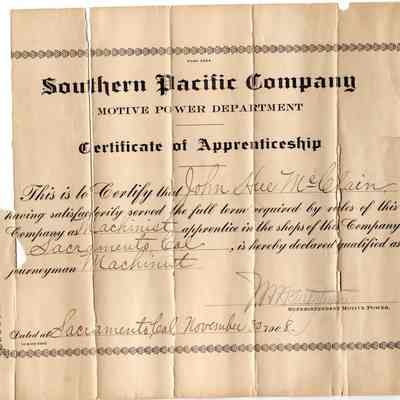 Southern Pacific Company
MOTIVE POWER DEPARTMENT
Certificate of Apprenticeship
This is to Certify that John Hue McClain
having satisfactorily served the full term required by rules of this
Company as Machinist apprentice in the shops of this Company
Sacramento Cal, is hereby declared qualified as
journeyman Machinist
SUPERINTENDENT MOTIVE POWER.
Dated at Sacramento, Cal November 1908.